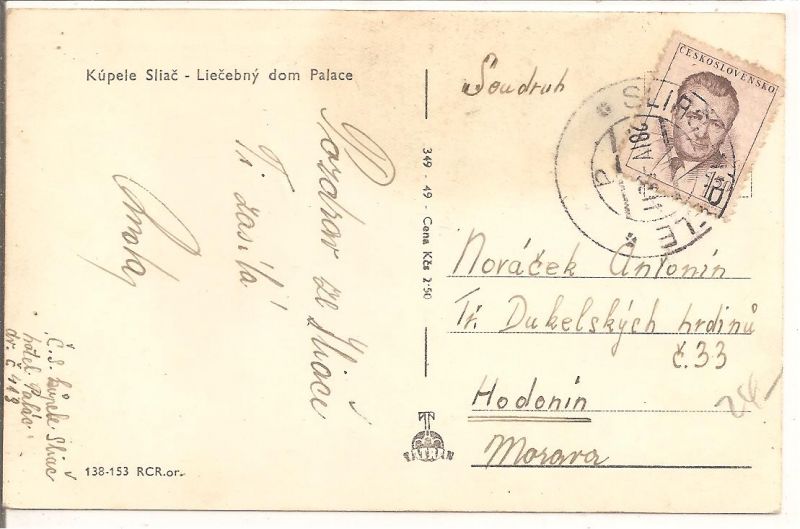 Kúpele Sliač - Liečebný dom Palace
Pozdrav ze Sliače
Ti zasílá
Č. S. Kúpele Sliač
hotel Palác
dv. č 413
138-153 RCR.or.
349 - 49 - Cena Kčs 2·50
TATRAN
Soudruh
Nováček Antonín
Tř. Dukelských hrdinů
č. 33
Hodonín
Morava
ČESKOSLOVENSKO
SLIAČ